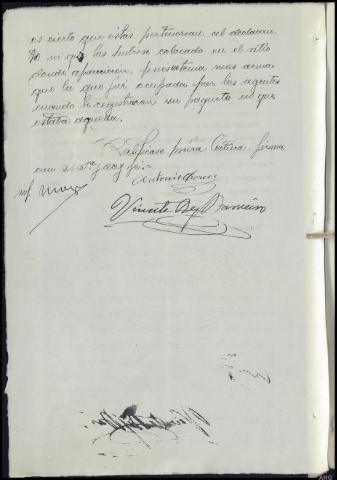 es cierto que éstas pertenecieran al declarante
to ni que las hubiera colocado en el sitio
donde aparecieron, pues tenía mas arma
que la que fué ocupada por los agentes
cuando le registraron un paquete en que
estaba aquella.
Ratificase previa lectura firma
con S.Sª y doy fe.
Antonio
Vicente Rey
ARQ